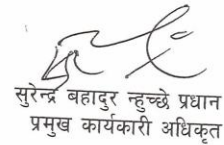 सुरेन्द्र बहादुर न्हुच्छे प्रधान
प्रमुख कार्यकारी अधिकृत